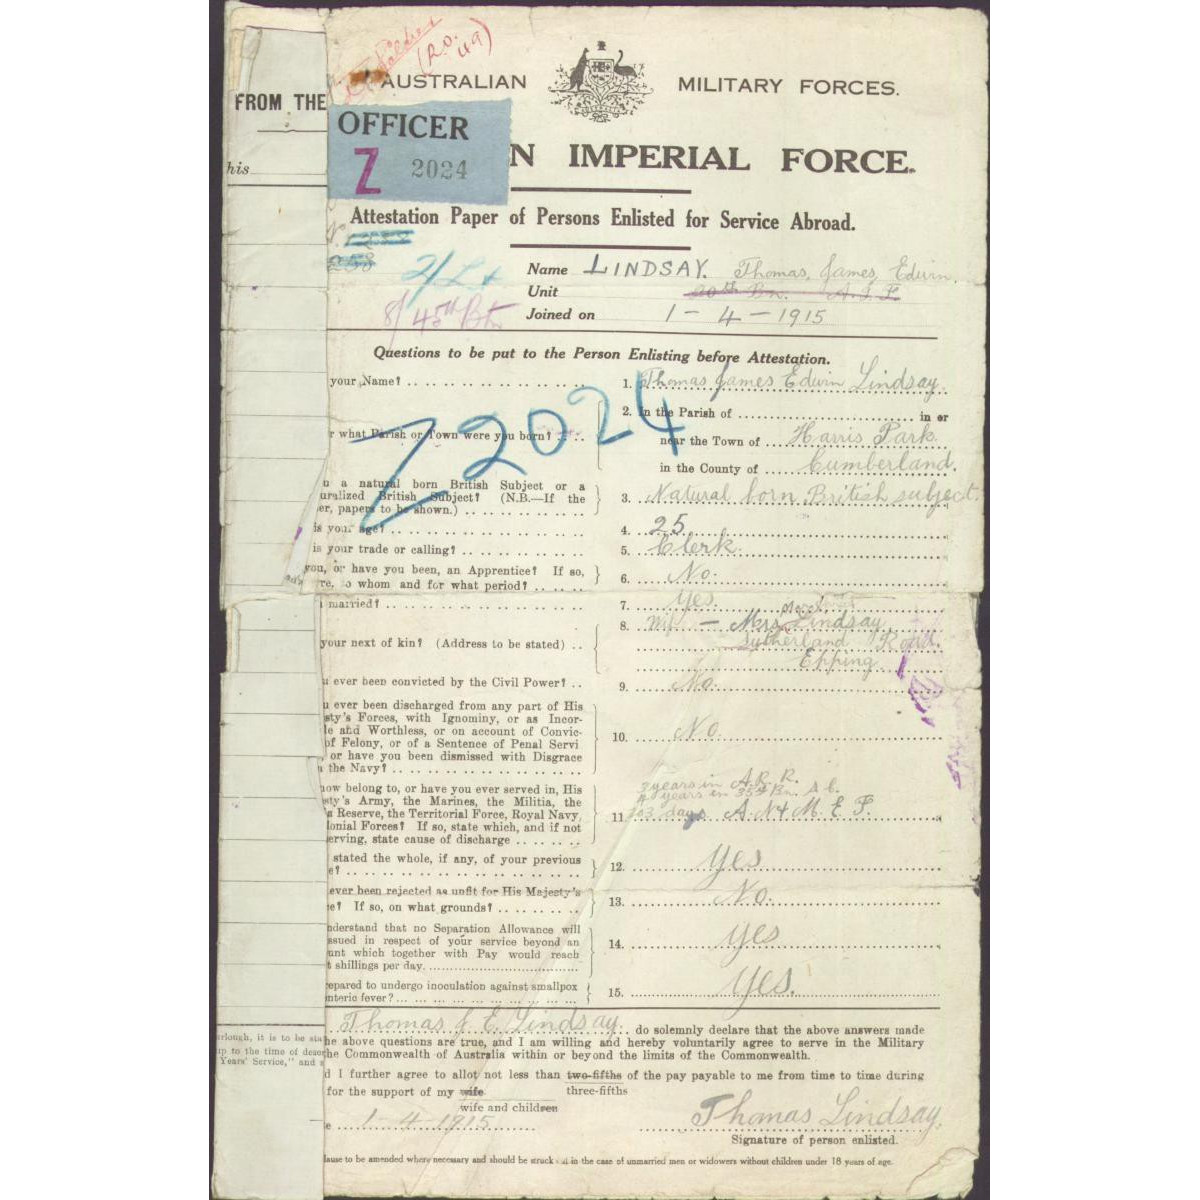 (R.O. 49)
AUSTRALIAN MILITARY FORCES.
FROM THE
OFFICER
Z 2024
N IMPERIAL FORCE.
his
Attestation Paper of Persons Enlisted for Service Abroad.
2/Lt
8/45th Btn
Name LINDSAY. Thomas, James, Edwin.
Unit 20th Bn. A.I.F.
Joined on 1 - 4 - 1915
Questions to be put to the Person Enlisting before Attestation.
your Name? 1. Thomas James Edwin Lindsay.
Z2024
2. In the Parish of in or
what Parish or Town were you born? near the Town of Harris Park.
in the County of Cumberland.
a natural born British Subject or a
uralized British Subject? (N.B.—If the 3. Natural born British subject.
er, papers to be shown.)
is your age? 4. 25
is your trade or calling? 5. Clerk
you, or have you been, an Apprentice? If so, 6. No.
re, to whom and for what period?
married? 7. Yes.
8. Wife — Mrs Lindsay
your next of kin? (Address to be stated) Sutherland Road.
Epping
u ever been convicted by the Civil Power? 9. No.
u ever been discharged from any part of His
sty's Forces, with Ignominy, or as Incor-
le and Worthless, or on account of Convic-
of Felony, or of a Sentence of Penal Servi 10. No.
or have you been dismissed with Disgrace
the Navy?
now belong to, or have you ever served in, His years in A.R.R.
sty's Army, the Marines, the Militia, the 4 years in 35th Bn. S.C.
s Reserve, the Territorial Force, Royal Navy, 11 days A.N & M.E.F.
lonial Forces? If so, state which, and if not
erving, state cause of discharge
stated the whole, if any, of your previous 12. Yes
e?
ever been rejected as unfit for His Majesty's 13. No.
ce? If so, on what grounds?
nderstand that no Separation Allowance will
issued in respect of your service beyond an 14. Yes
unt which together with Pay would reach
t shillings per day.
repared to undergo inoculation against smallpox 15. Yes.
nteric fever?
Thomas J. E. Lindsay do solemnly declare that the above answers made
he above questions are true, and I am willing and hereby voluntarily agree to serve in the Military
the Commonwealth of Australia within or beyond the limits of the Commonwealth.
rlough, it is to be sta
up to the time of deser
Years' Service," and s
d I further agree to allot not less than two-fifths of the pay payable to me from time to time during
three-fifths
for the support of my wife
wife and children
1 - 4 - 1915
Thomas Lindsay.
Signature of person enlisted.
lause to be amended where necessary and should be struck out in the case of unmarried men or widowers without children under 18 years of age.